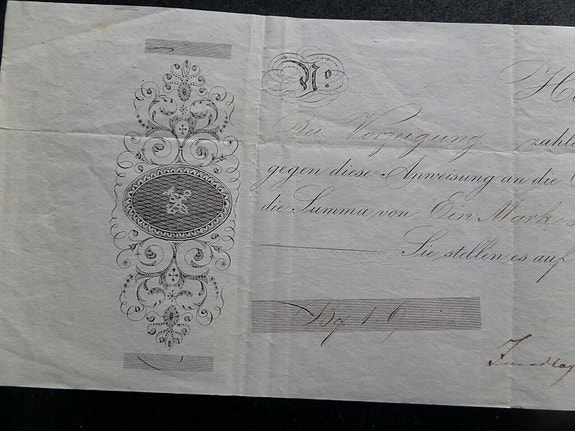 N.º
Bei Vorzeigung zahl
gegen diese Anweisung an die
die Summa von Ein Mark
Sie stellen es auf